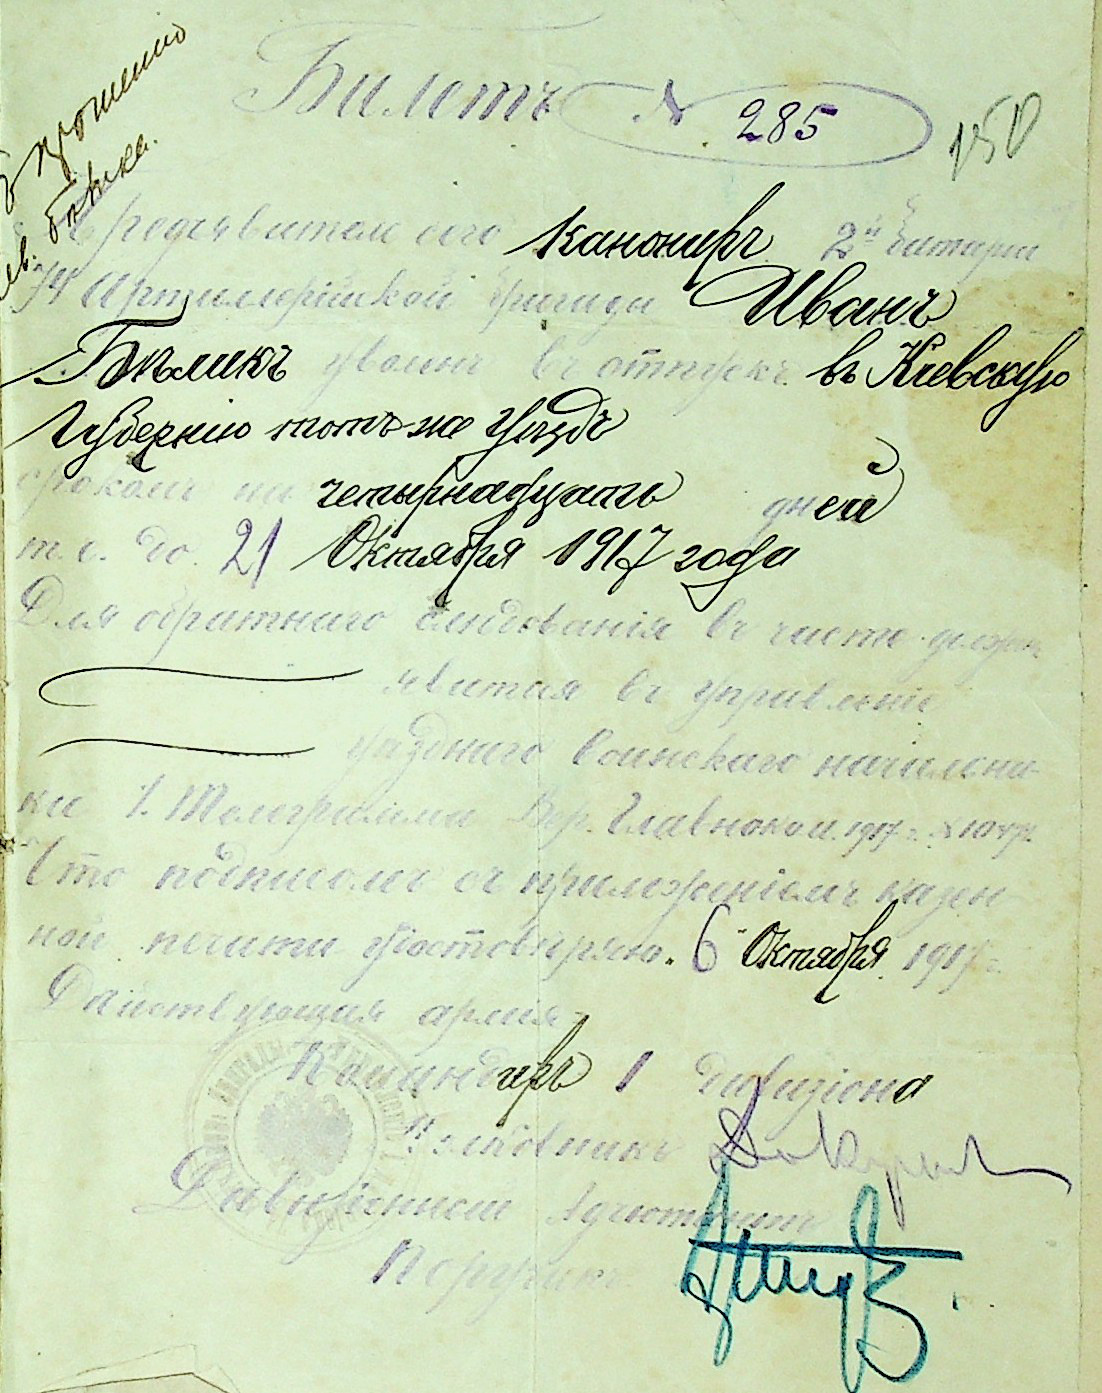 къ прошению
Билетъ № 285
150
Предъявитель сего канониръ 2й батареи
Артиллерійской бригады Иванъ
Бѣликъ уволенъ въ отпускъ въ Кіевскую
Губернію тотъ же уѣздъ
срокомъ на четырнадцать дней
т. е. до 21 Октября 1917 года
Для обратнаго слѣдованія въ части долженъ
явиться въ управленіе
уѣзднаго воинскаго начальни-
ка Телеграмма Вер. Главноком. 1917 г.
Что подписомъ съ приложеніемъ казен-
ной печати удостовѣряю. 6 Октября 1917 г.
Дѣйствующая армія
Командиръ 1 дивизіона
Полковникъ
Адъютантъ
Поручикъ